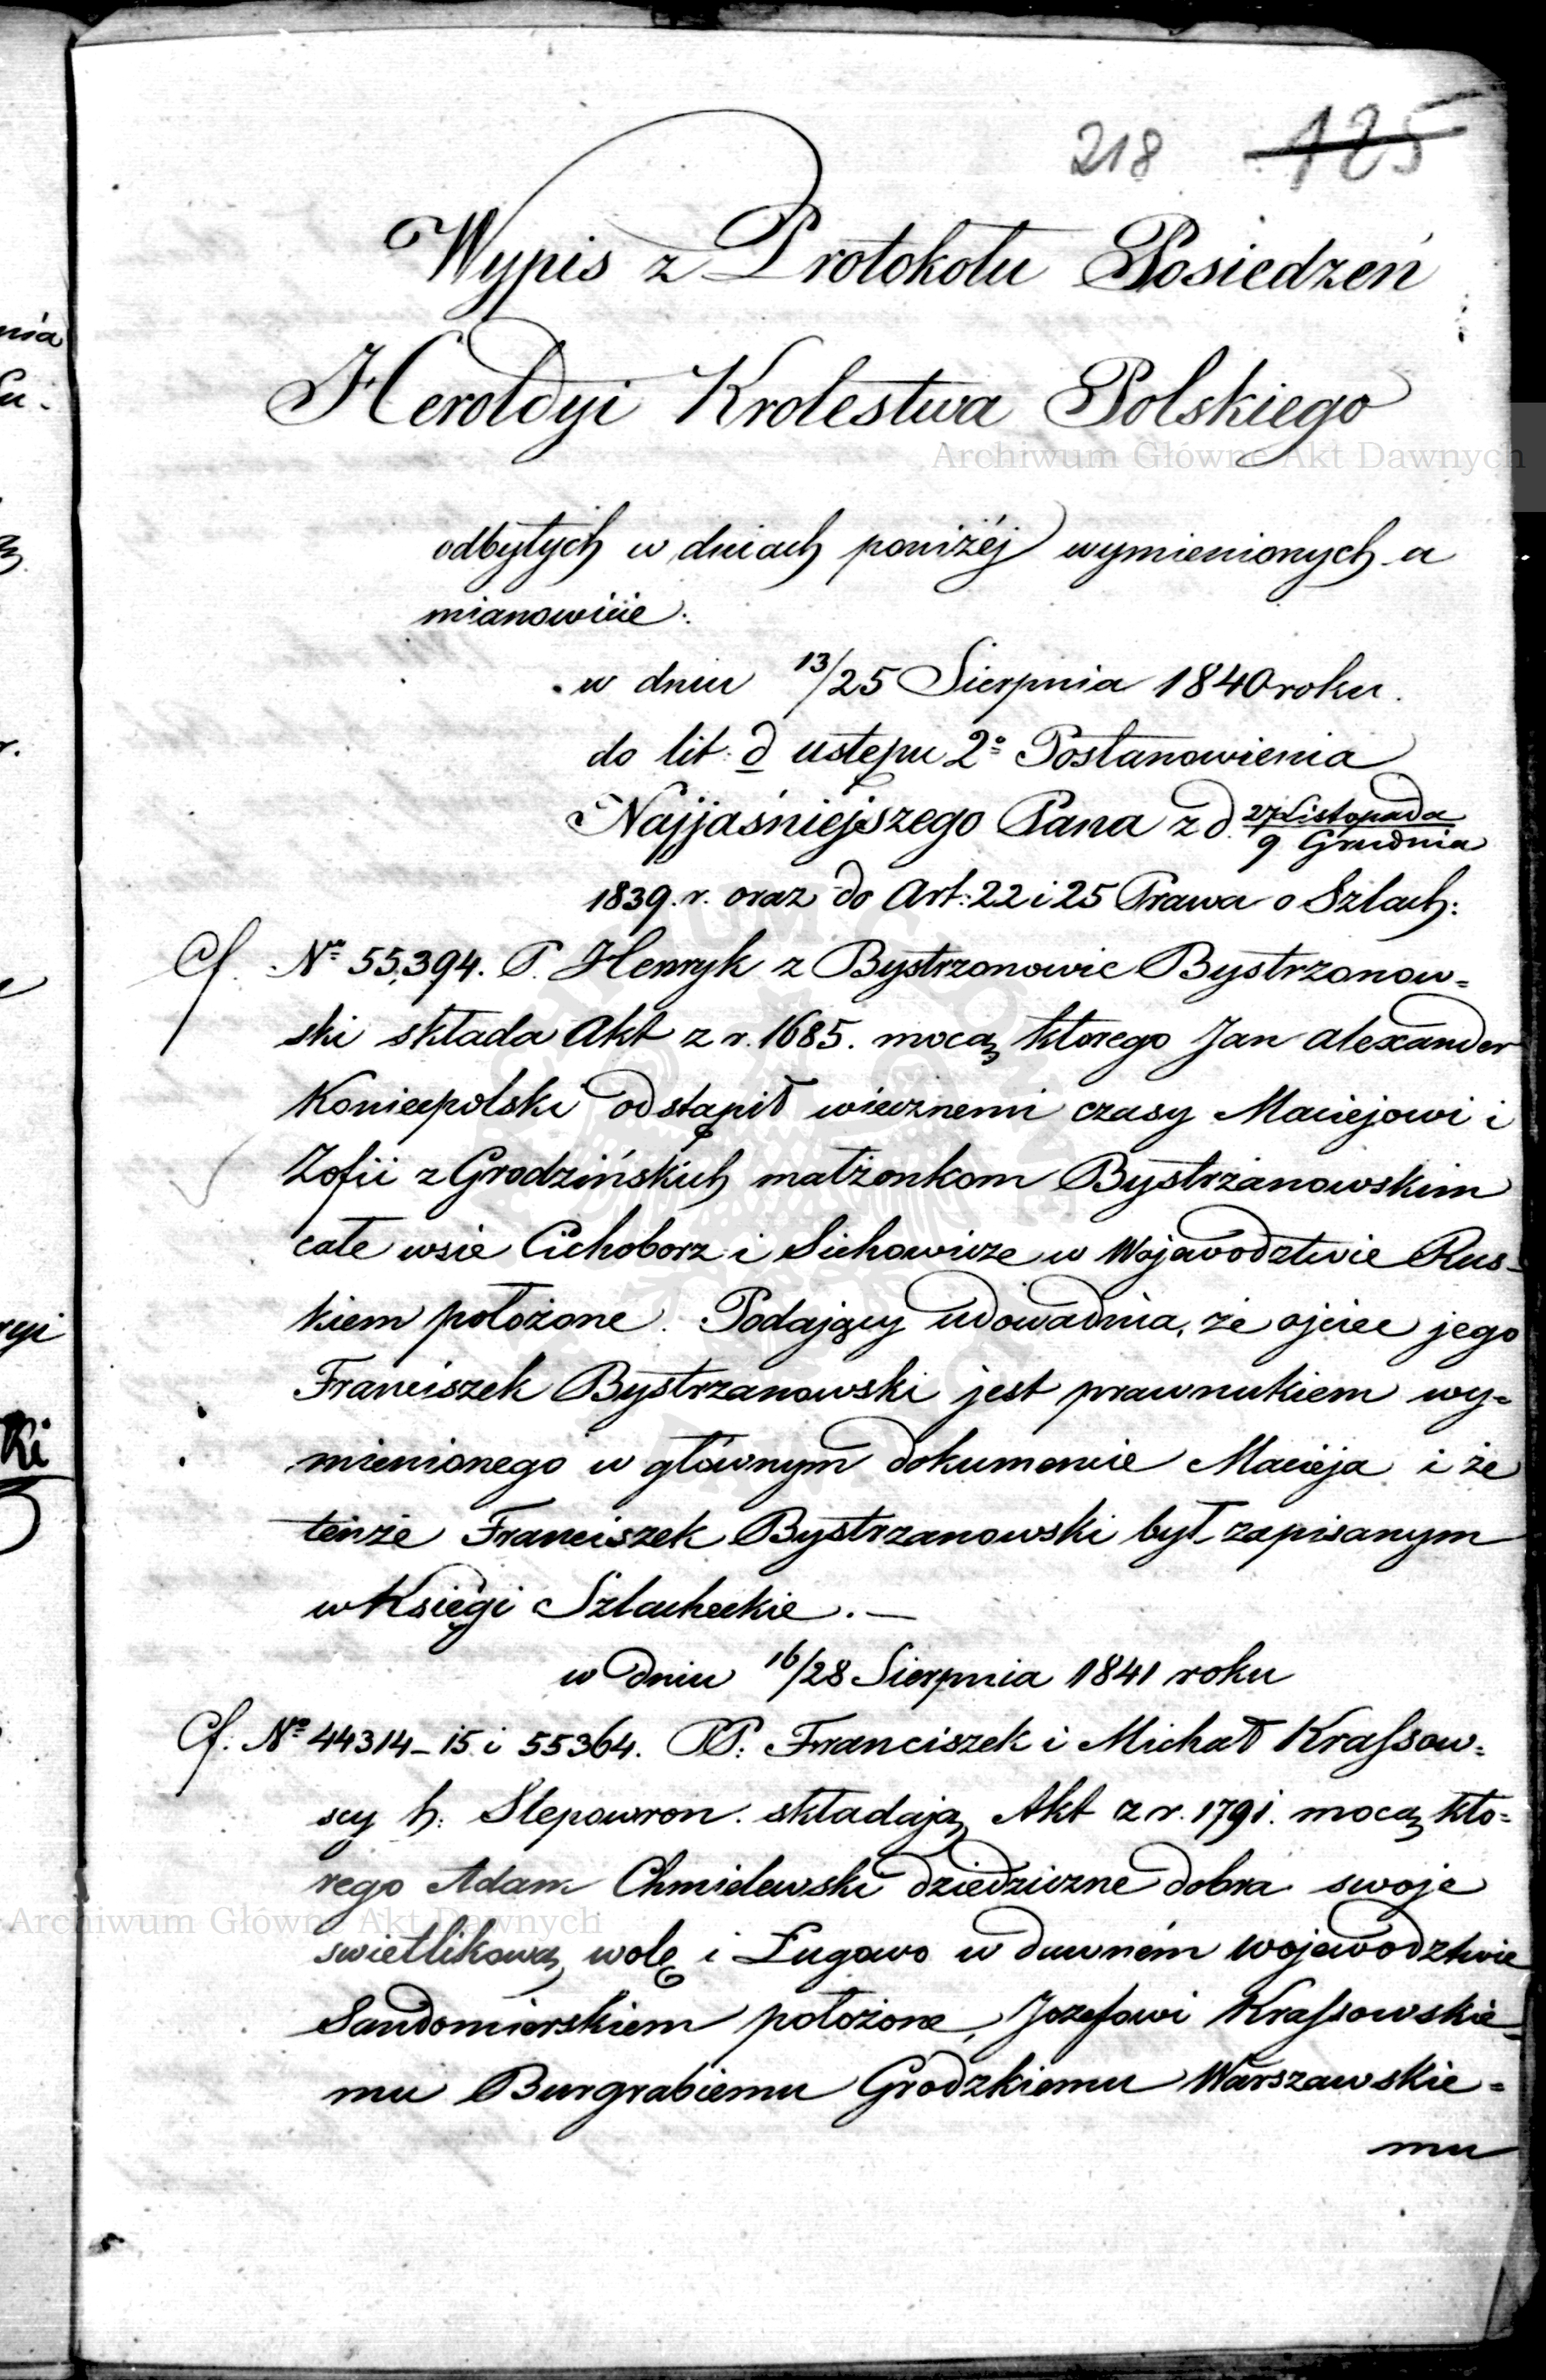 218 125
Wypis z Protokołu Posiedzeń
Heroldyi Krolestwa Polskiego
Archiwum Główne Akt Dawnych
odbytych w dniach poniżéj wymienionych a
mianowicie:
w dniu 13/25 Sierpnia 1840 roku.
do lit: d ustępu 2º Postanowienia
Najjaśniejszego Pana z d. 27 Listopada / 9 Grudnia
1839. r. oraz do Art: 22 i 25 Prawa o Szlach:
Cf. Nº 55,394. P. Henryk z Bystrzonowic Bystrzonow=
ski składa Akt z r. 1685. mocą ktorego Jan Alexander
Koniecpolski odstąpił wiecznemi czasy Maciejowi i
Zofii z Grodzińskich małżonkom Bystrzanowskim
całe wsie Cichoborz i Sichowicze w Wojewodztwie Rus=
kiem położone. Podający udowadnia, że ojciec jego
Franciszek Bystrzanowski jest prawnukiem wy=
mienionego w głównym dokumencie Macieja i że
tenże Franciszek Bystrzanowski był zapisanym
w Księgi Szlacheckie. —
w dniu 16/28 Sierpnia 1841 roku
Cf. Nº 44314-15 i 55364. PP: Franciszek i Michał Krassow=
scy h: Slepowron. składają Akt z r. 1791. mocą kto=
rego Adam Chmielewski dziedziczne dobra swoje
Archiwum Główne Akt Dawnych
swietlikową wolę i Ługowo w dawném wojewodztwie
Sandomierskiem położone, Jozefowi Krassowskie=
mu Burgrabiemu Grodzkiemu Warszawskie=
mu